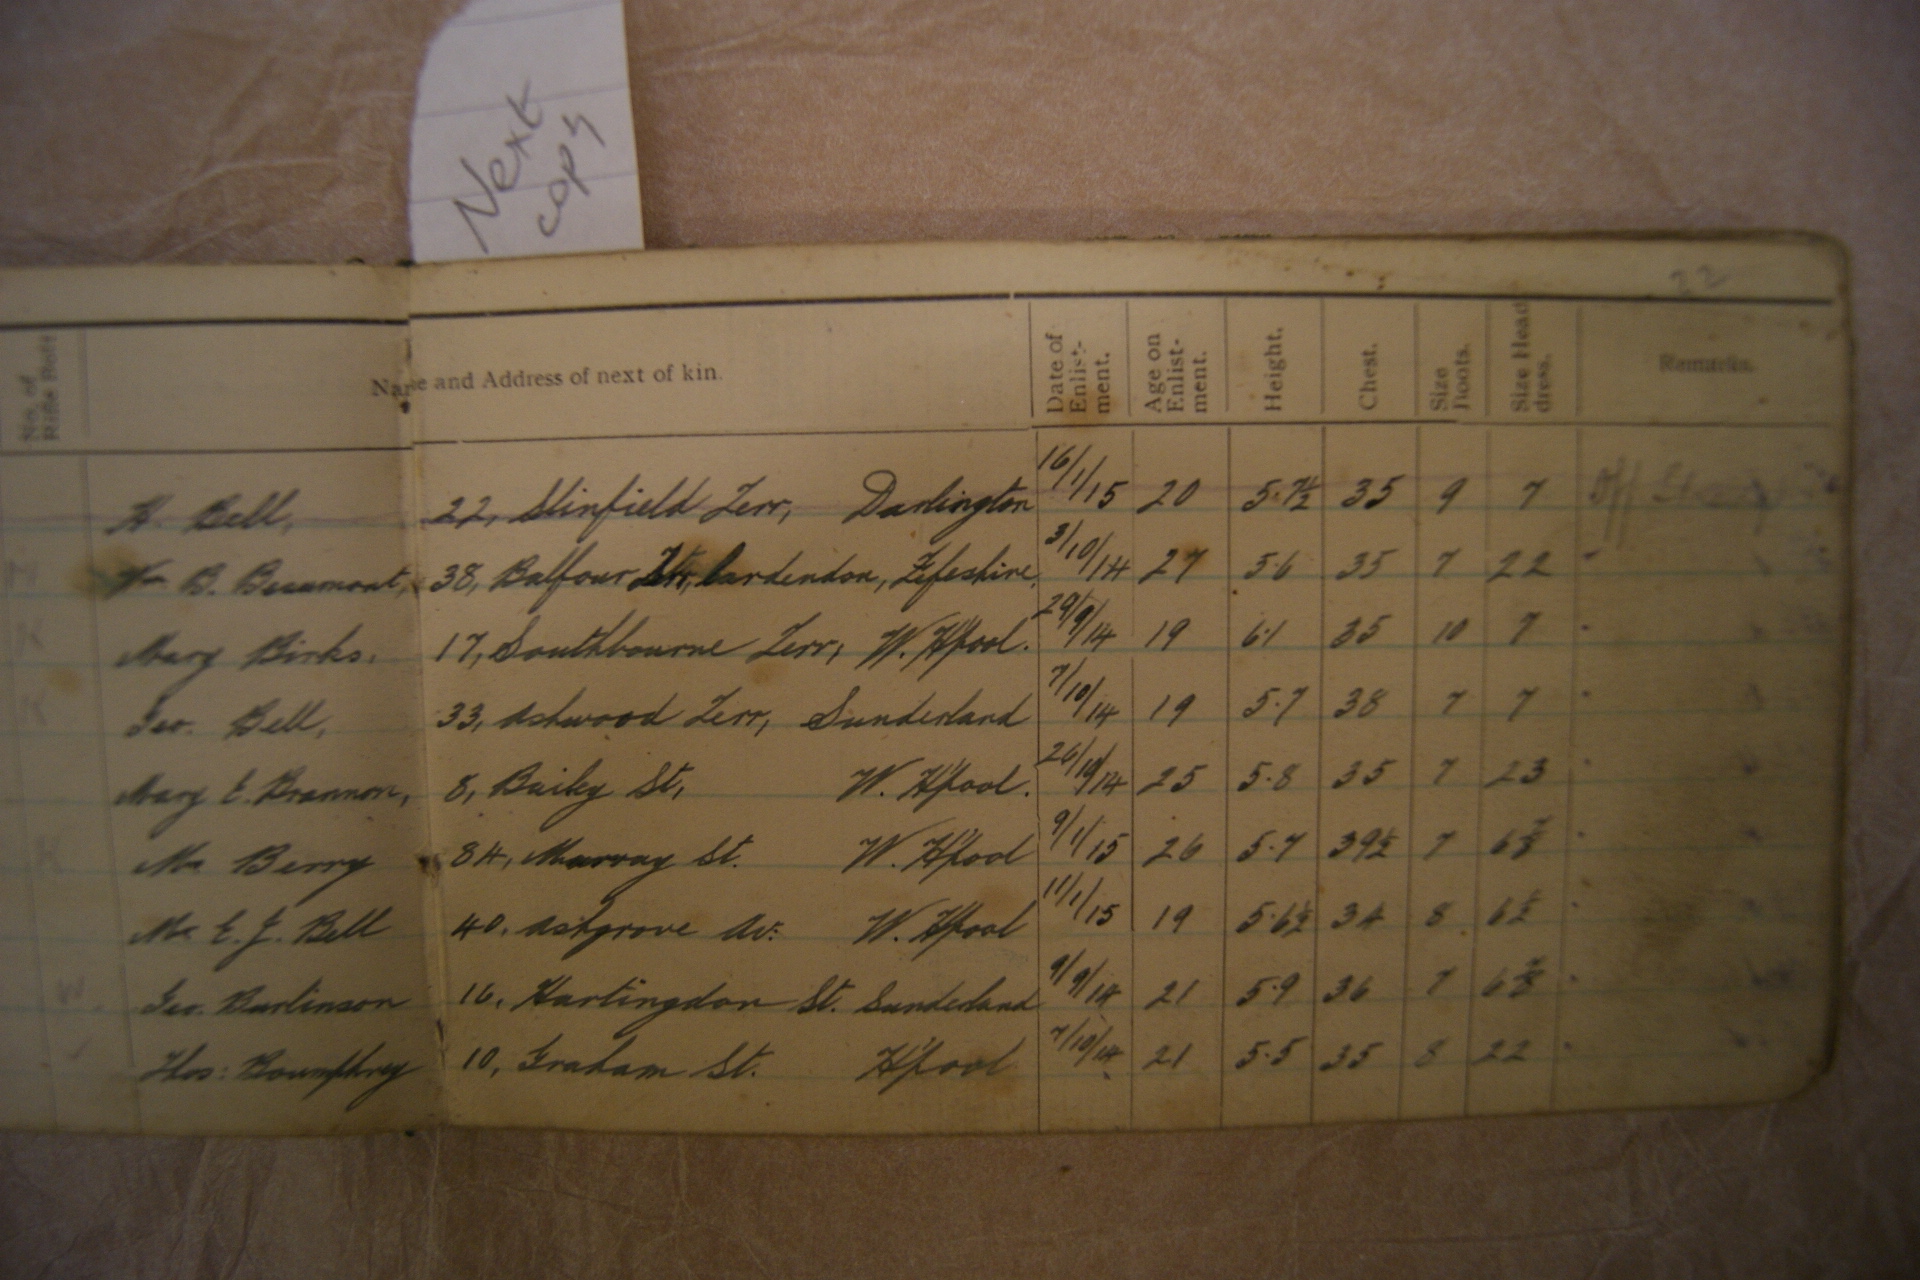 Next
copy
22
No. of Rifle Butt
Name and Address of next of kin.
Date of Enlist-ment.
Age on Enlist-ment.
Height.
Chest.
Size Boots.
Size Head dress.
Remarks.
H. Bell, 22, Stinfield Terr, Darlington 16/1/15 20 5·7½ 35 9 7 Off
Wm B. Beaumont, 38, Balfour Str, Cardendon, Fifeshire, 3/10/14 27 5·6 35 7 22 "
Mary Birks, 17, Southbourne Terr, W. H'pool. 29/9/14 19 6·1 35 10 7 "
Geo. Bell, 33, Ashwood Terr, Sunderland 7/10/14 19 5·7 38 7 7 "
Mary E. Brannon, 8, Bailey St, W. H'pool. 26/10/14 25 5·8 35 7 23 "
Mr Berry 84, Murray St. W. H'pool 9/1/15 26 5·7 39½ 7 6⅞ "
Mr E. J. Bell 40, Ashgrove Av: W. H'pool 11/1/15 19 5·6½ 34 8 6½ "
Geo. Burlinson 16, Hartingdon St. Sunderland 9/9/14 21 5·9 36 7 6⅞ "
Thos: Boumphrey 10, Graham St. H'pool 7/10/14 21 5·5 35 8 22 "